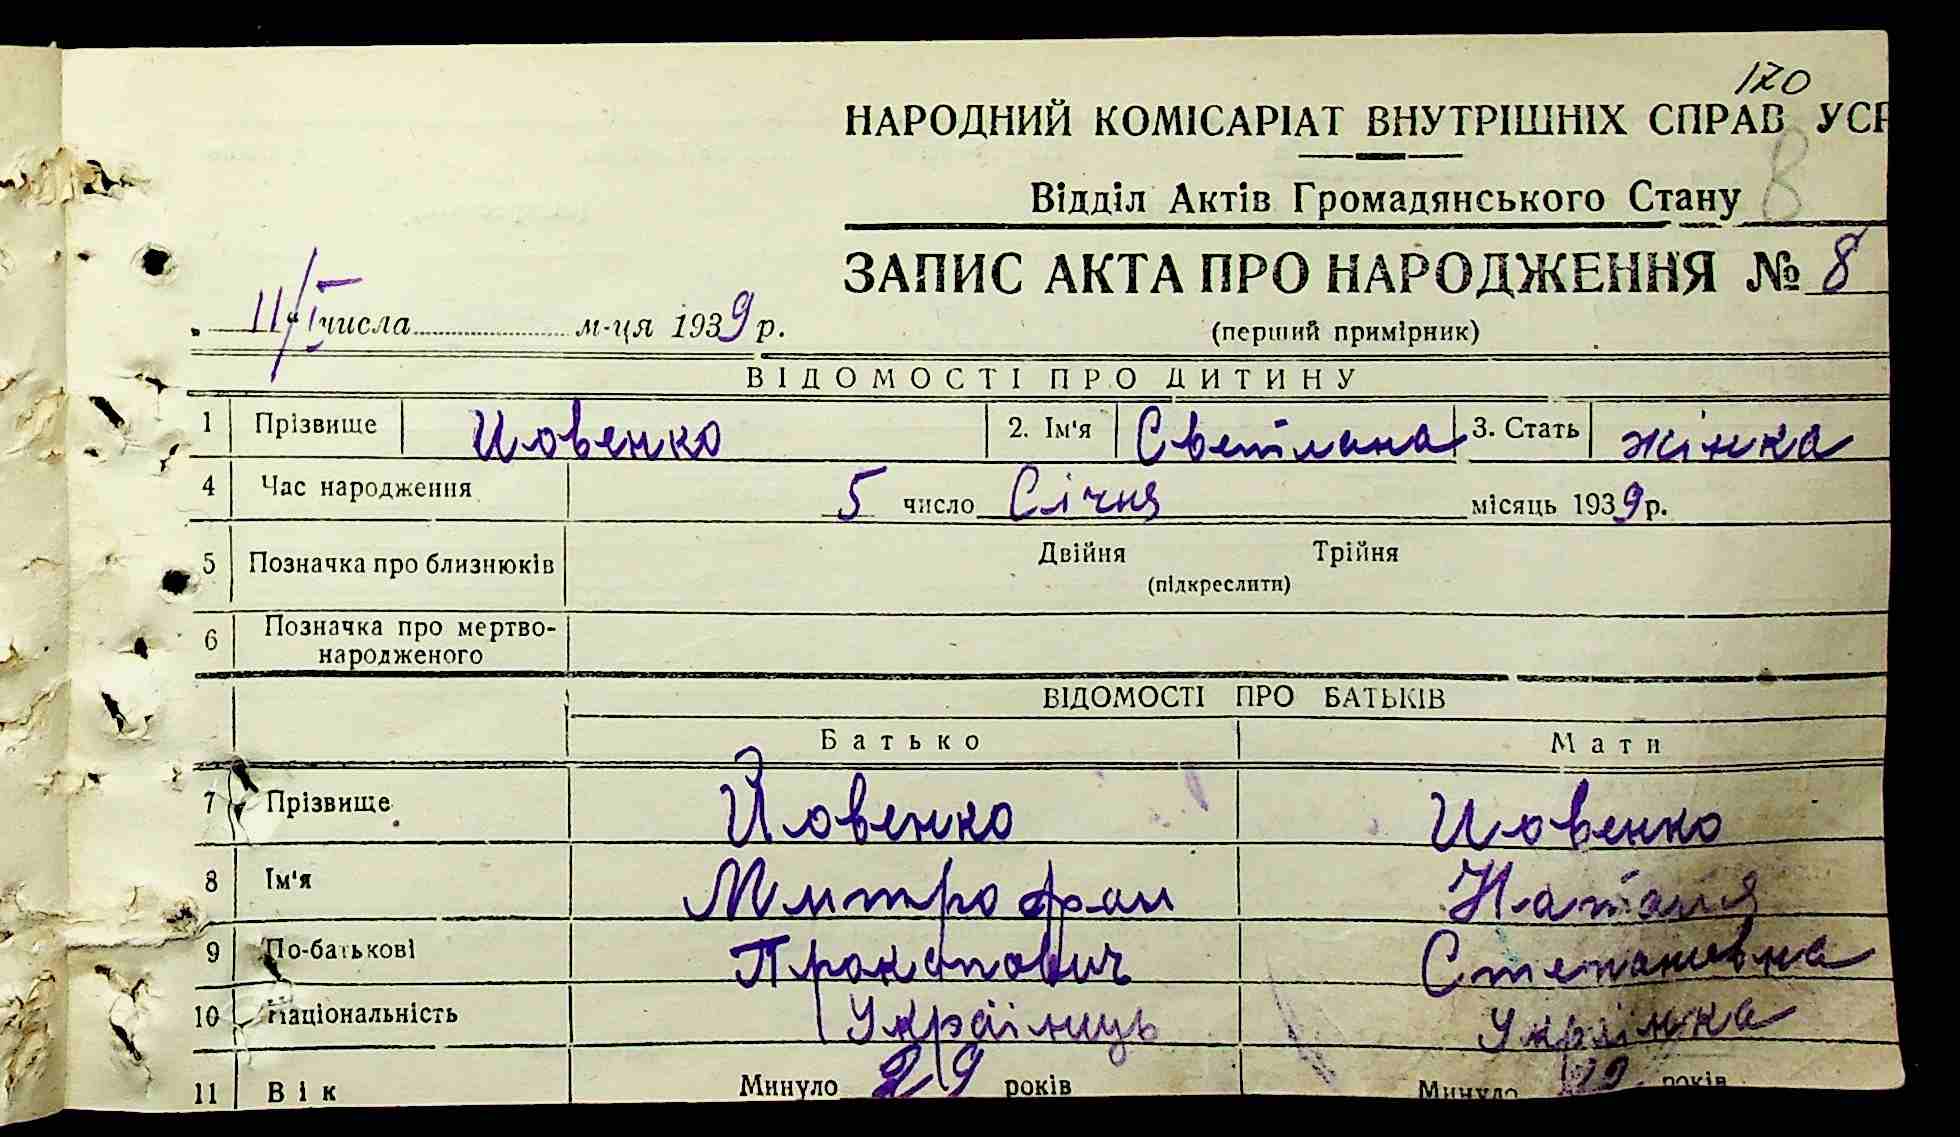 170
НАРОДНИЙ КОМІСАРІАТ ВНУТРІШНІХ СПРАВ УСР
8
Відділ Актів Громадянського Стану
ЗАПИС АКТА ПРО НАРОДЖЕННЯ № 8
(перший примірник)
11/I числа м-ця 1939 р.
ВІДОМОСТІ ПРО ДИТИНУ
1 Прізвище Иовенко 2. Ім'я Светлана 3. Стать жінка
4 Час народження 5 число Січня місяць 1939 р.
5 Позначка про близнюків Двійня Трійня
(підкреслити)
6 Позначка про мертво-
народженого
ВІДОМОСТІ ПРО БАТЬКІВ
Батько Мати
7 Прізвище Йовенко Иовенко
8 Ім'я Митрофан Наталя
9 По-батькові Пракопович Степановна
10 Національність Українець Українка
11 Вік Минуло 29 років Минуло років